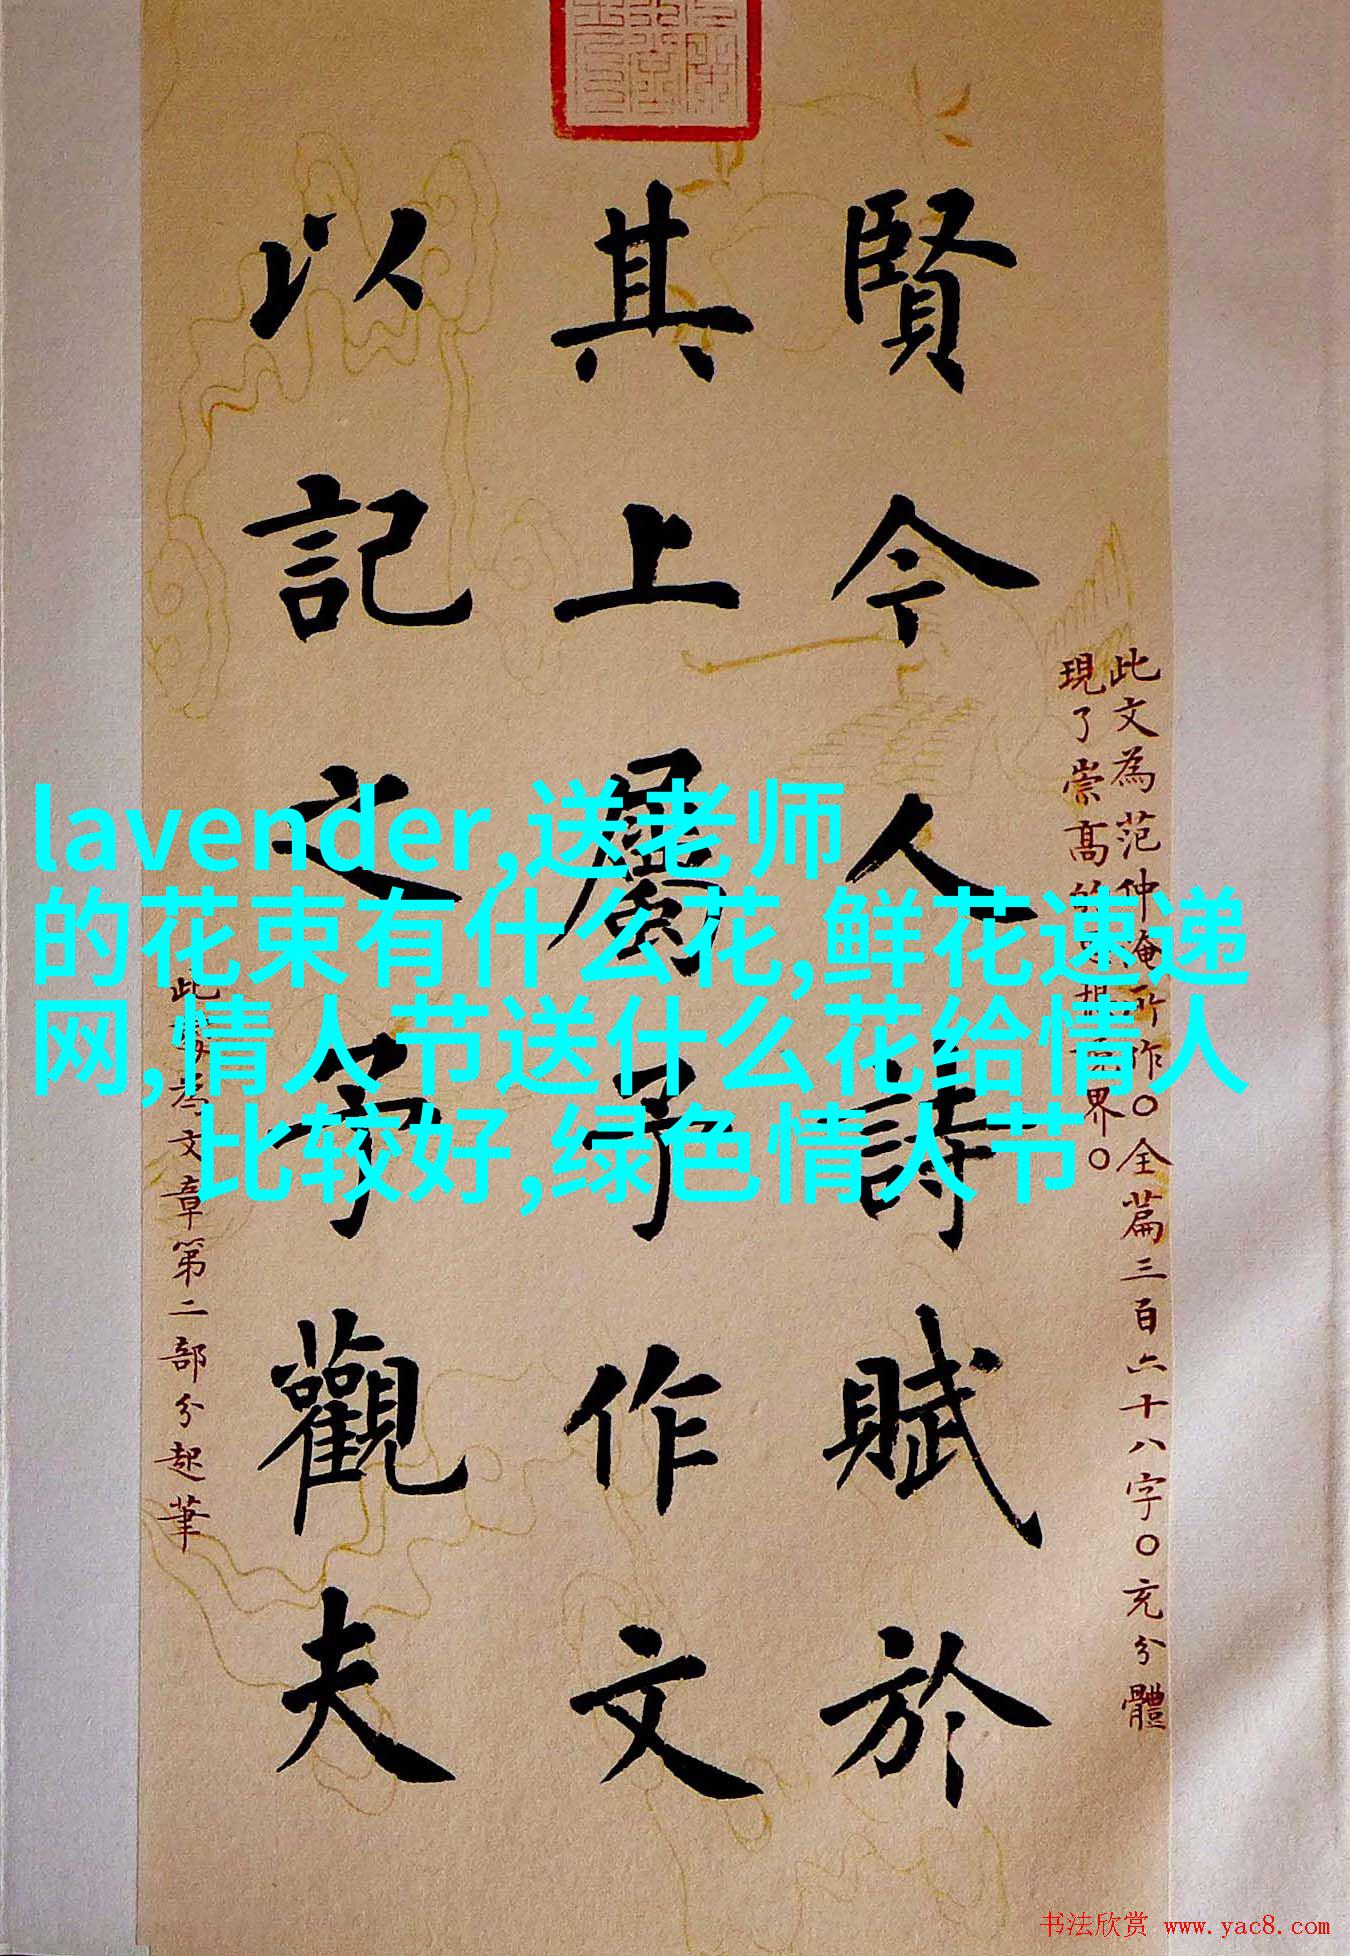 此文為范仲淹所作〇全篇三百六十八字〇充分體
現了崇高的界〇
賢今人詩賦於
其上屬予作文
以記之予觀夫
此處為文章第二部分起筆
lavender,送老师
的花束有什么花,鲜花速递
网,情人节送什么花给情人
比较好,绿色情人节
书法欣赏 www.yac8.com